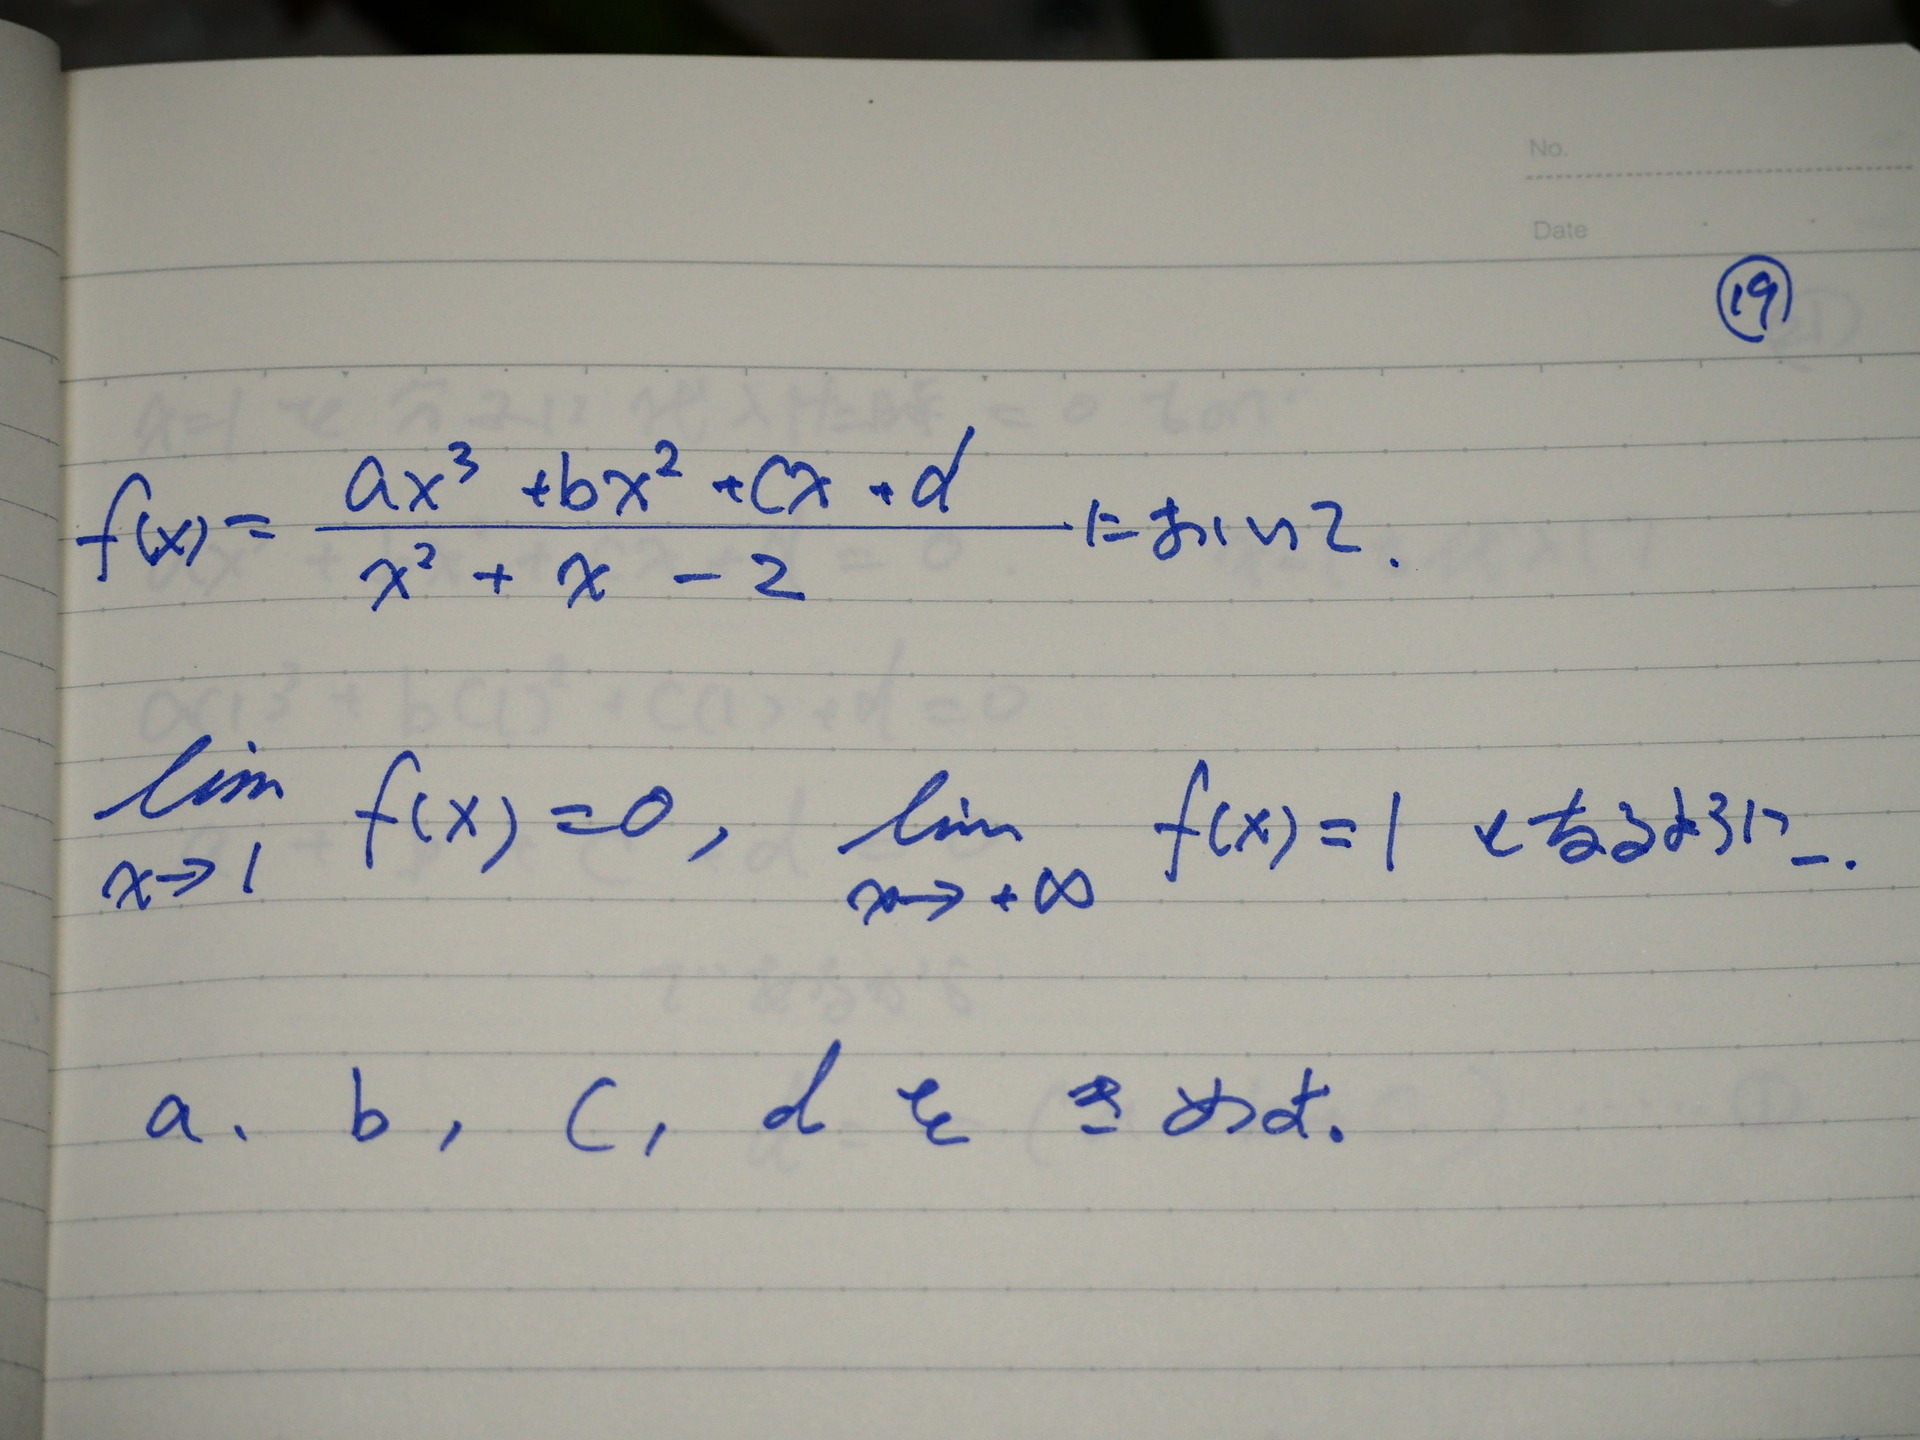 No.
Date
⑲
f(x) = \frac{ax^3 + bx^2 + cx + d}{x^2 + x - 2} において.
\lim_{x→1} f(x) = 0, \lim_{x→+∞} f(x) = 1 となるように.
a. b, c, d を きめよ.